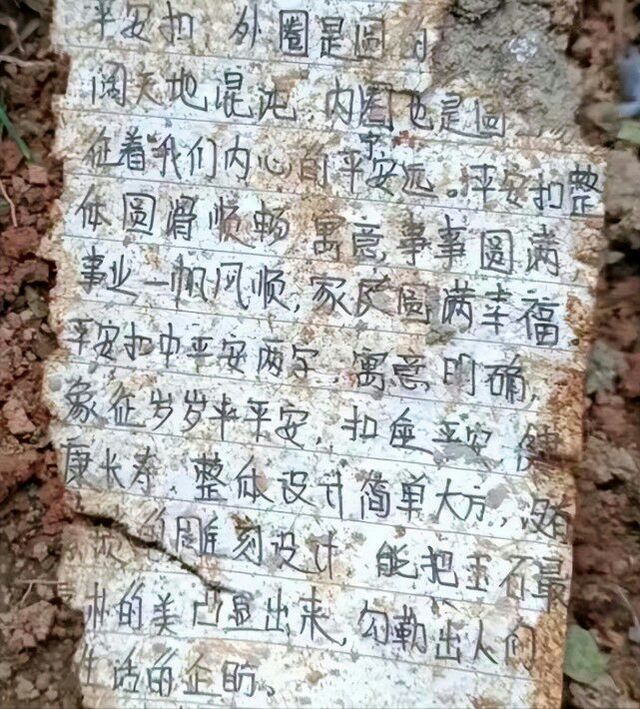 平安扣 外圈是圆
阔天地混沌,内圈也是圆
征着我们内心的平安远。平安扣整
体圆滑顺畅 寓意事事圆满,
事业一帆风顺,家民圆满幸福
平安扣中平安两字,寓意明确,
象征岁岁平平安,扣座平安,健
康长寿.整体设计简单大方,没有
的雕刻设计 能把玉石最
的美凸显出来,勾勒出人们
生活的企盼。